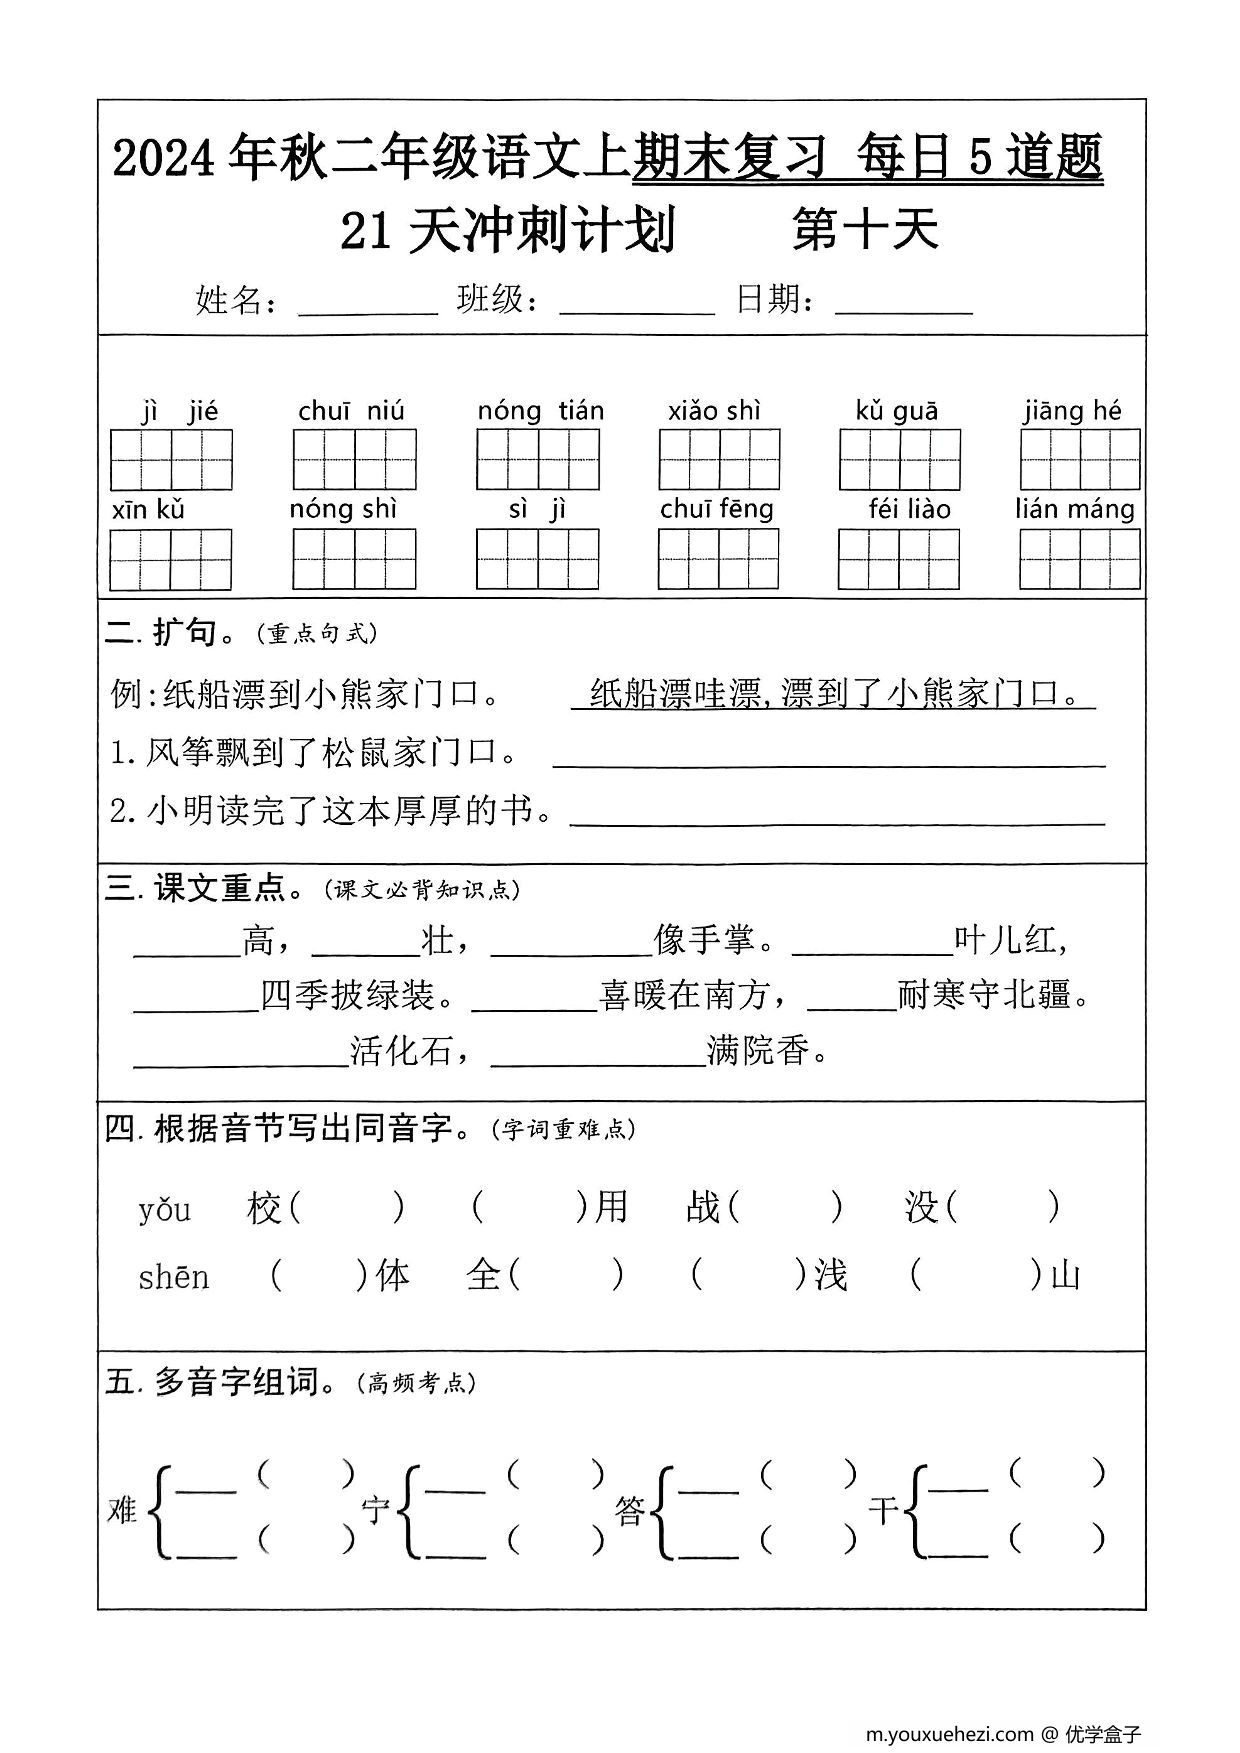 2024年秋二年级语文上期末复习 每日5道题
21天冲刺计划 第十天
姓名：________ 班级：_________ 日期：________
jì jié chuī niú nóng tián xiǎo shì kǔ guā jiāng hé
xīn kǔ nóng shì sì jì chuī fēng féi liào lián máng
二.扩句。(重点句式)
例:纸船漂到小熊家门口。 纸船漂哇漂,漂到了小熊家门口。
1.风筝飘到了松鼠家门口。________________
2.小明读完了这本厚厚的书。________________
三.课文重点。(课文必背知识点)
______高，______壮，_________像手掌。_________叶儿红,
_______四季披绿装。_______喜暖在南方，_____耐寒守北疆。
____________活化石，____________满院香。
四.根据音节写出同音字。(字词重难点)
yǒu 校( ) ( )用 战( ) 没( )
shēn ( )体 全( ) ( )浅 ( )山
五.多音字组词。(高频考点)
___ ( ) ___ ( ) ___ ( ) ___ ( )
难 宁 答 干
___ ( ) ___ ( ) ___ ( ) ___ ( )
m.youxuehezi.com @ 优学盒子